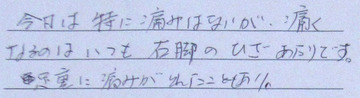 今日は特に痛みはないが、痛く
なるのはいつも右脚のひざあたりです。
に痛みが